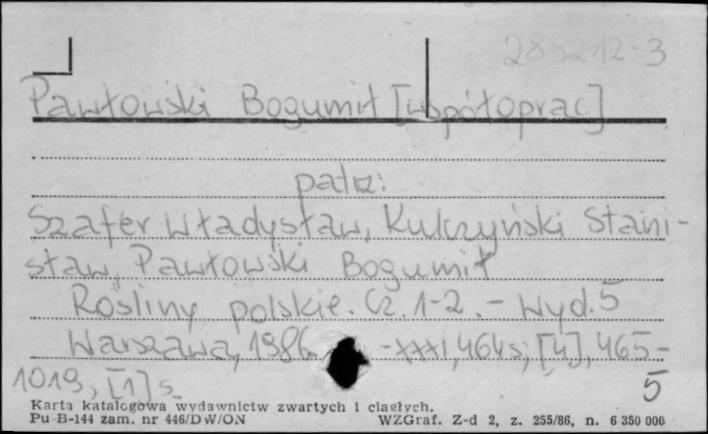 288212-3
Pawłowski Bogumił [współoprac]
patrz:
Szafer Władysław, Kulczyński Stani-
sław, Pawłowski Bogumił
Rośliny polskie. Cz. 1-2. - Wyd. 5
Warszawa, 1986 - XXXI, 464 s; [4], 465-
1019, [1] s.
5
Karta katalogowa wydawnictw zwartych i ciągłych.
Pu B-144 zam. nr 446/DW/ON WZGraf. Z-d 2, z. 255/86, n. 6 350 000